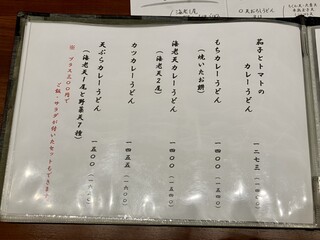 茄子とトマトの
カレーうどん 一二七三
もちカレーうどん 一四〇〇 (一五四〇)
(焼いたお餅)
海老天カレーうどん 一四〇〇 (一五四〇)
(海老天2尾)
カツカレーうどん 一四五五 (一六〇〇)
天ぷらカレーうどん 一五〇〇
(海老天1尾と野菜天7種)
※ プラス三〇〇円で
ご飯・サラダが付いたセットもできます。